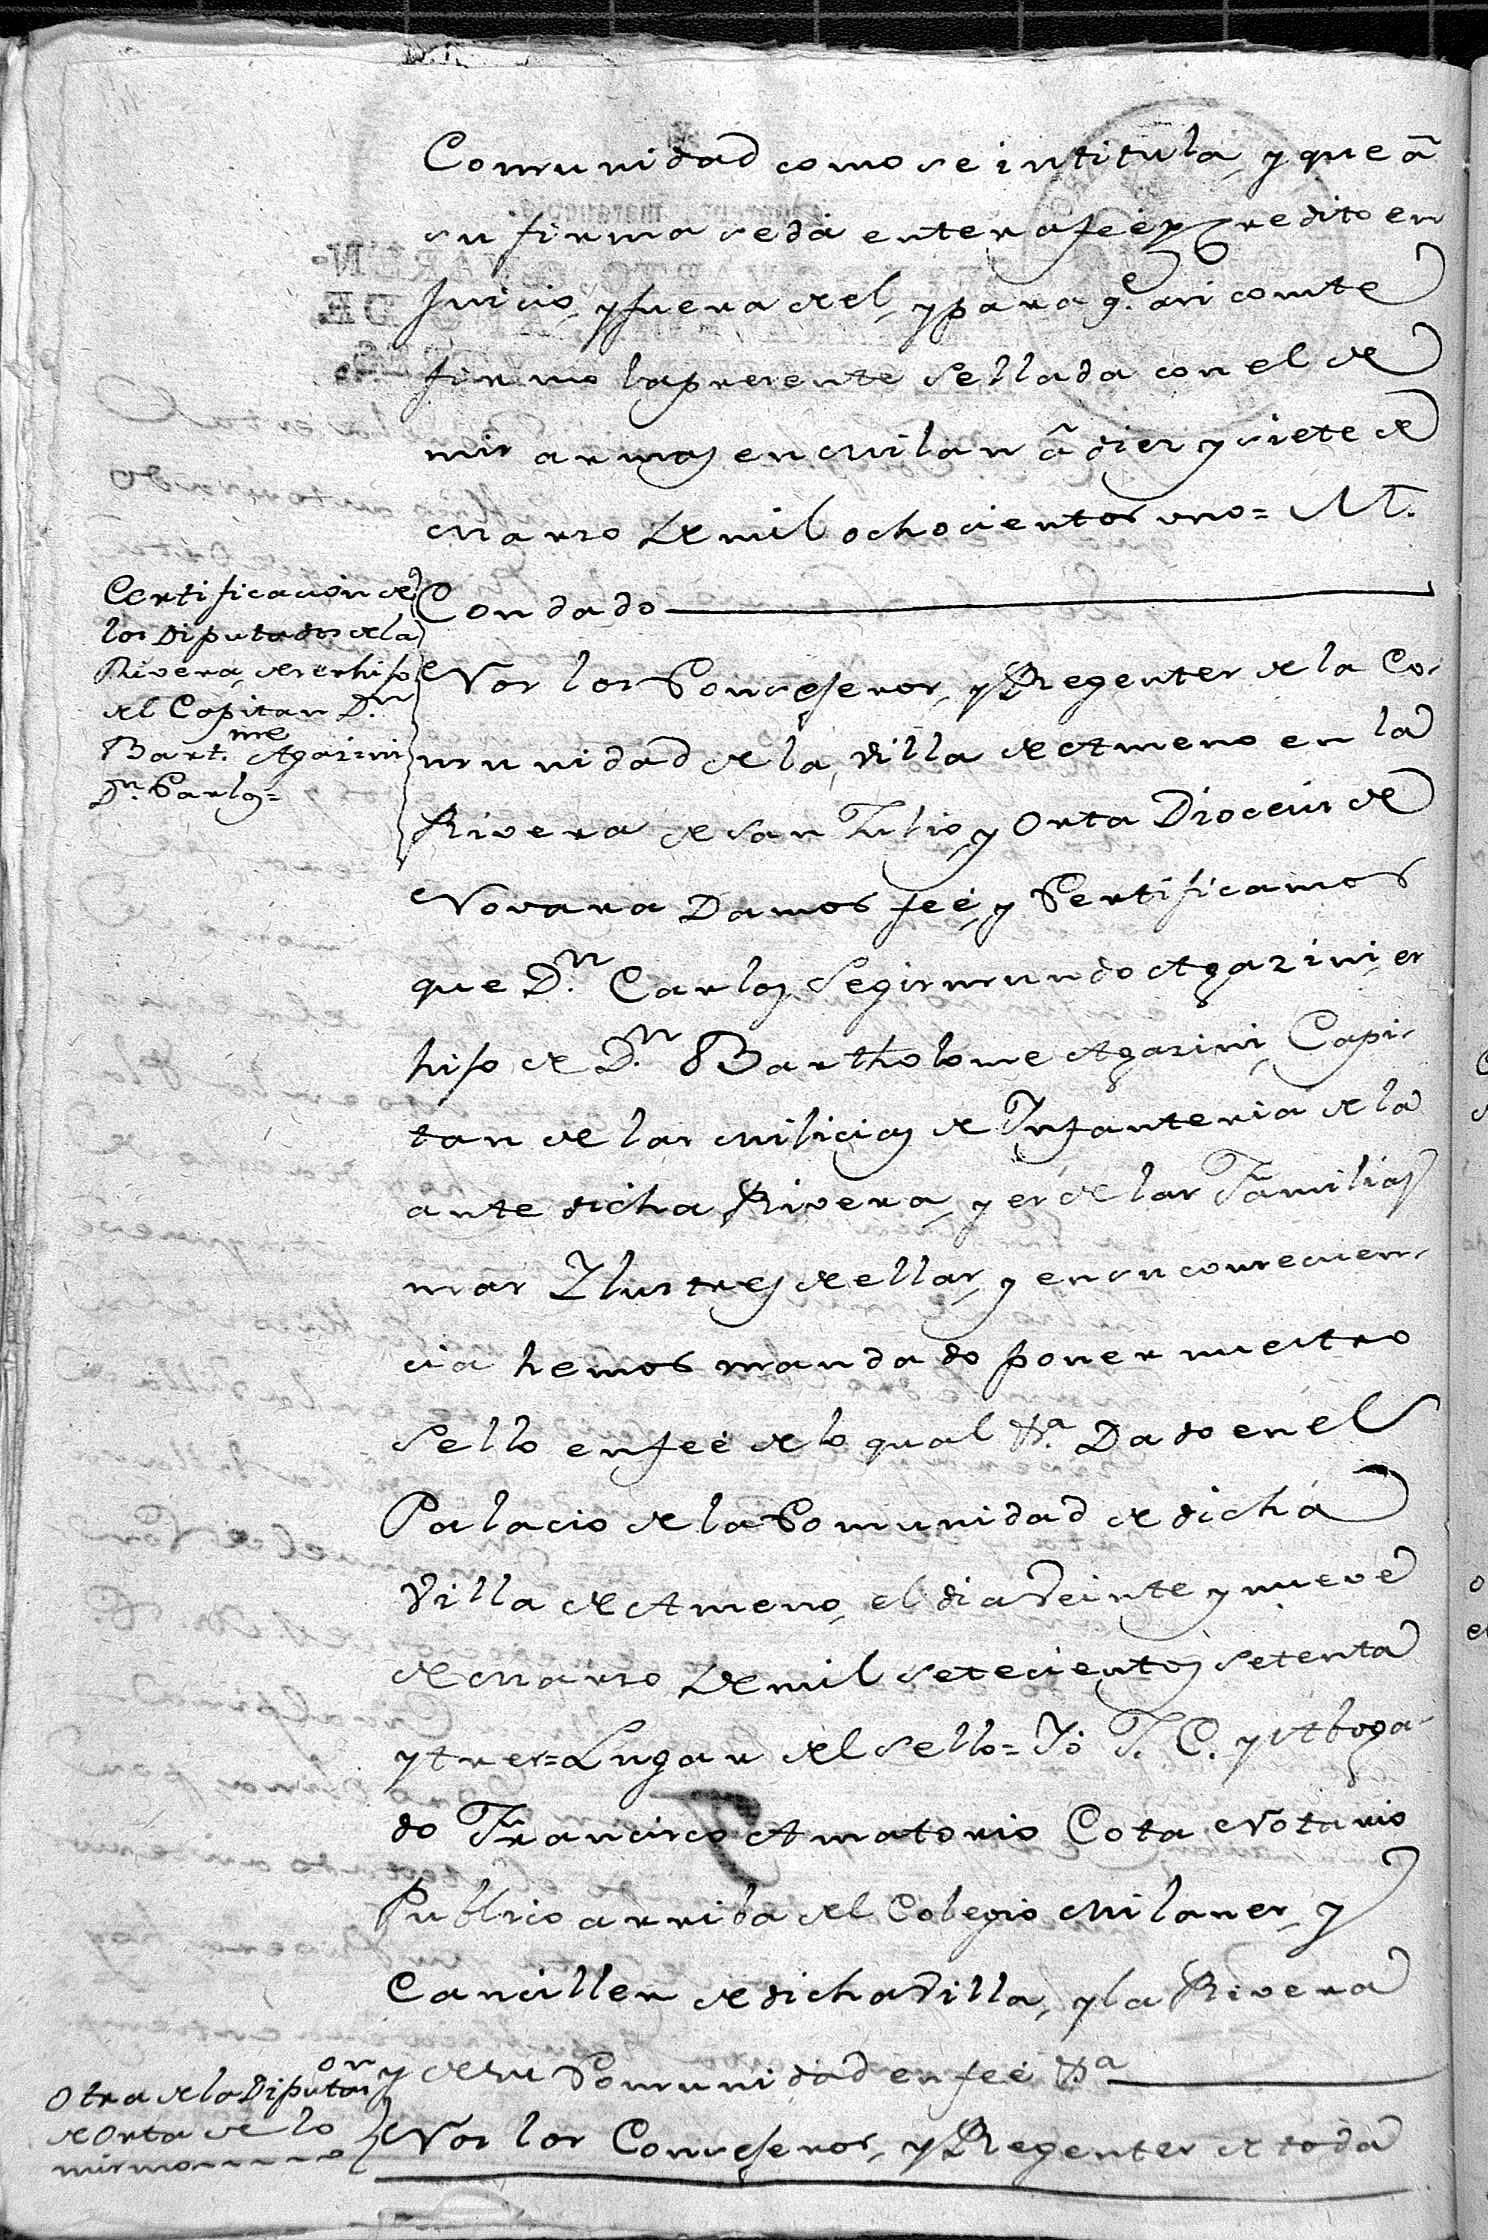 Comunidad como se intitula, y que â
su firma se dá entera feé, y Credito en
Juicio, y fuera de el, y para q.e asi conste
firmo la presente sellada con el de
mis armas en Milan â diez y siete de
Marzo de mil ochocientos uno = M.
Condado
Certificacion de
los Diputados de la
Rivera, de ser hijo
del Capitan D.n
Bart.me Agazini
D.n Carlos =
Nos los Consejeros, y Regentes de la Co-
munidad de la Villa de Ameno en la
Rivera de San Julio, y Orta Diocesis de
Novara Damos feé, y Certificamos
que D.n Carlos Segismundo Agazini, es
hijo de D.n Bartholome Agazini, Capi-
tan de las Milicias de Infanteria de la
ante dicha Rivera, y es de las Familias
mas Ilustres de ellas, y en su consecuen-
cia hemos mandado poner nuestro
Sello en feé de lo qual &.a Dado en el
Palacio de la Comunidad de dicha
Villa de Ameno, el dia Veinte y nueve
de Marzo de mil setecientos setenta
y tres = Lugar del Sello = Yó T. C. y Aboga-
do Francisco Amatorio Cota Notario
Publico arriba del Colegio Milanes, y
Canciller de dicha Villa, y la Rivera
y de su Comunidad en feé &.a
Otra de la Diputas.on
de Orta de lo
mismo
Nos los Consejeros, y Regentes de toda